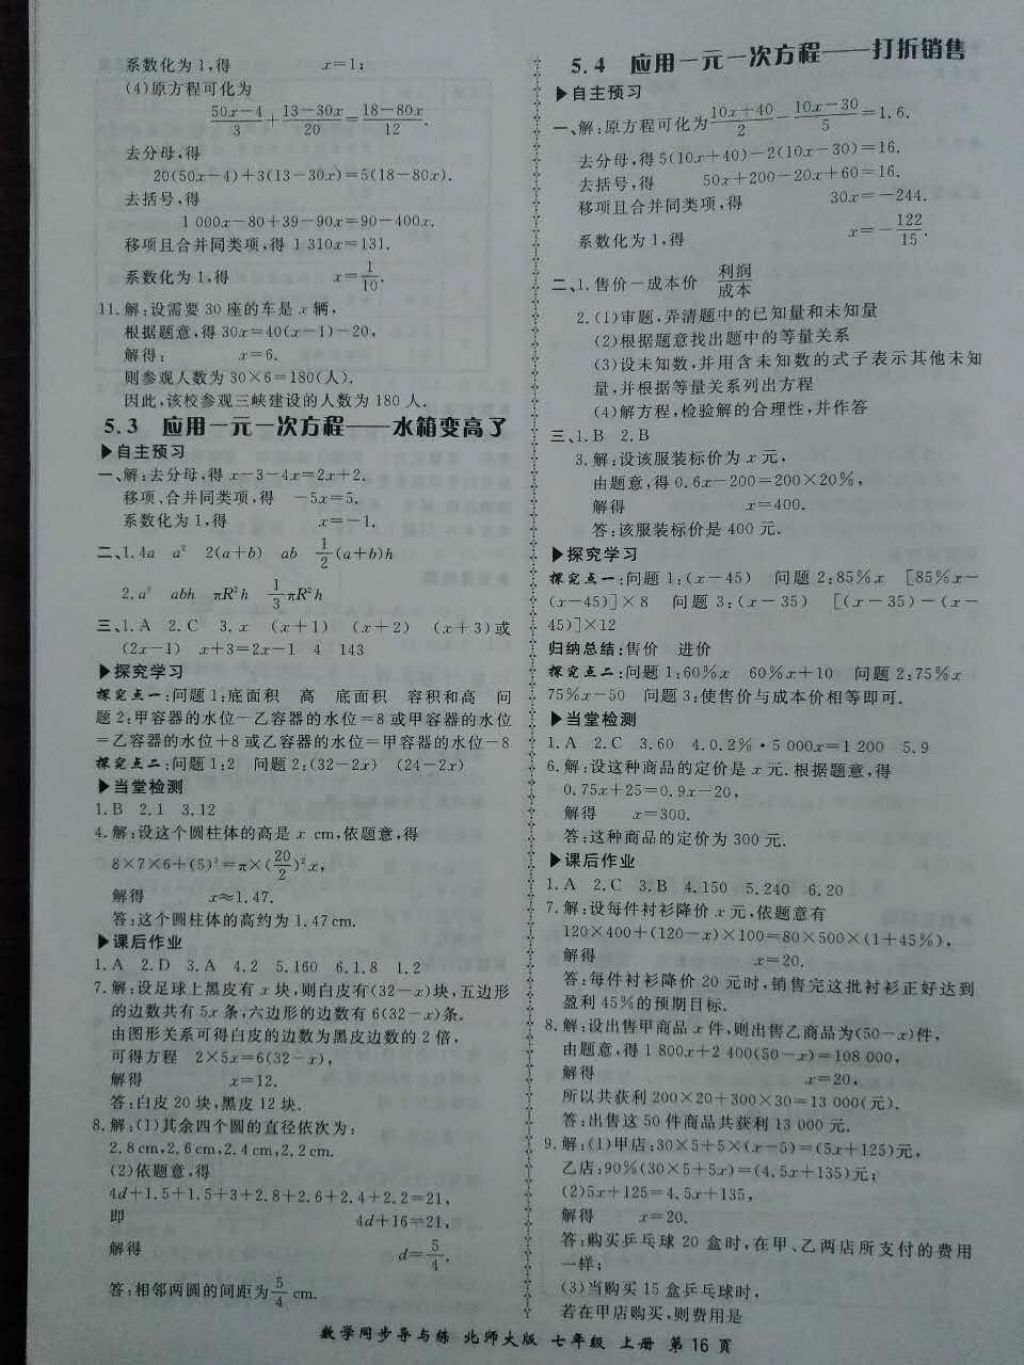 系数化为1,得 x=1;
(4)原方程可化为
(50x-4)/3+(13-30x)/20=(18-80x)/12.
去分母,得
20(50x-4)+3(13-30x)=5(18-80x).
去括号,得
1 000x-80+39-90x=90-400x.
移项且合并同类项,得 1 310x=131.
系数化为1,得 x=1/10.
11.解:设需要30座的车是x辆,
根据题意,得30x=40(x-1)-20,
解得: x=6.
则参观人数为30×6=180(人).
因此,该校参观三峡建设的人数为180人.
5.3 应用一元一次方程——水箱变高了
▶自主预习
一、解:去分母,得x-3-4x=2x+2.
移项、合并同类项,得 -5x=5.
系数化为1,得 x=-1.
二、1.4a a² 2(a+b) ab 1/2(a+b)h
2.a³ abh πR²h 1/3πR²h
三、1.A 2.C 3.x (x+1) (x+2) (x+3)或
(2x-1) x+3=2x-1 4 143
▶探究学习
探究点一:问题1:底面积 高 底面积 容积和高 问
题2:甲容器的水位-乙容器的水位=8或甲容器的水位
=乙容器的水位+8或乙容器的水位=甲容器的水位-8
探究点二:问题1:2 问题2:(32-2x) (24-2x)
▶当堂检测
1.B 2.1 3.12
4.解:设这个圆柱体的高是x cm,依题意,得
8×7×6+(5)³=π×(20/2)²x,
解得 x≈1.47.
答:这个圆柱体的高约为1.47 cm.
▶课后作业
1.A 2.D 3.A 4.2 5.160 6.1.8 1.2
7.解:设足球上黑皮有x块,则白皮有(32-x)块,五边形
的边数共有5x条,六边形的边数有6(32-x)条.
由图形关系可得白皮的边数为黑皮边数的2倍,
可得方程 2×5x=6(32-x),
解得 x=12.
答:白皮20块,黑皮12块.
8.解:(1)其余四个圆的直径依次为:
2.8 cm,2.6 cm,2.4 cm,2.2 cm.
(2)依题意,得
4d+1.5+1.5+3+2.8+2.6+2.4+2.2=21,
即 4d+16=21,
解得 d=5/4,
答:相邻两圆的间距为5/4 cm.
5.4 应用一元一次方程——打折销售
▶自主预习
一、解:原方程可化为(10x+40)/2-(10x-30)/5=1.6.
去分母,得5(10x+40)-2(10x-30)=16.
去括号,得 50x+200-20x+60=16.
移项且合并同类项,得 30x=-244.
系数化为1,得 x=-122/15.
二、1.售价-成本价 利润/成本
2.(1)审题,弄清题中的已知量和未知量
(2)根据题意找出题中的等量关系
(3)设未知数,并用含未知数的式子表示其他未知
量,并根据等量关系列出方程
(4)解方程,检验解的合理性,并作答
三、1.B 2.B
3.解:设该服装标价为x元,
由题意,得0.6x-200=200×20%,
解得 x=400.
答:该服装标价是400元.
▶探究学习
探究点一:问题1:(x-45) 问题2:85%x [85%x-
(x-45)]×8 问题3:(x-35) [(x-35)-(x-
45)]×12
归纳总结:售价 进价
探究点二:问题1:60%x 60%x+10 问题2:75%x
75%x-50 问题3:使售价与成本价相等即可.
▶当堂检测
1.A 2.C 3.60 4.0.2%·5 000x=1 200 5.9
6.解:设这种商品的定价是x元.根据题意,得
0.75x+25=0.9x-20,
解得 x=300.
答:这种商品的定价为300元.
▶课后作业
1.A 2.C 3.B 4.150 5.240 6.20
7.解:设每件衬衫降价x元,依题意有
120×400+(120-x)×100=80×500×(1+45%),
解得 x=20.
答:每件衬衫降价20元时,销售完这批衬衫正好达到
盈利45%的预期目标.
8.解:设出售甲商品x件,则出售乙商品为(50-x)件,
由题意,得1 800x+2 400(50-x)=108 000,
解得 x=20,
所以共获利200×20+300×30=13 000(元).
答:出售这50件商品共获利13 000元.
9.解:(1)甲店:30×5+5×(x-5)=(5x+125)元,
乙店:90%(30×5+5x)=(4.5x+135)元;
(2)5x+125=4.5x+135,
解得 x=20.
答:购买乒乓球20盒时,在甲、乙两店所支付的费用
一样;
(3)当购买15盒乒乓球时,
若在甲店购买,则费用是
数学同步导与练 北师大版 七年级 上册 第16页